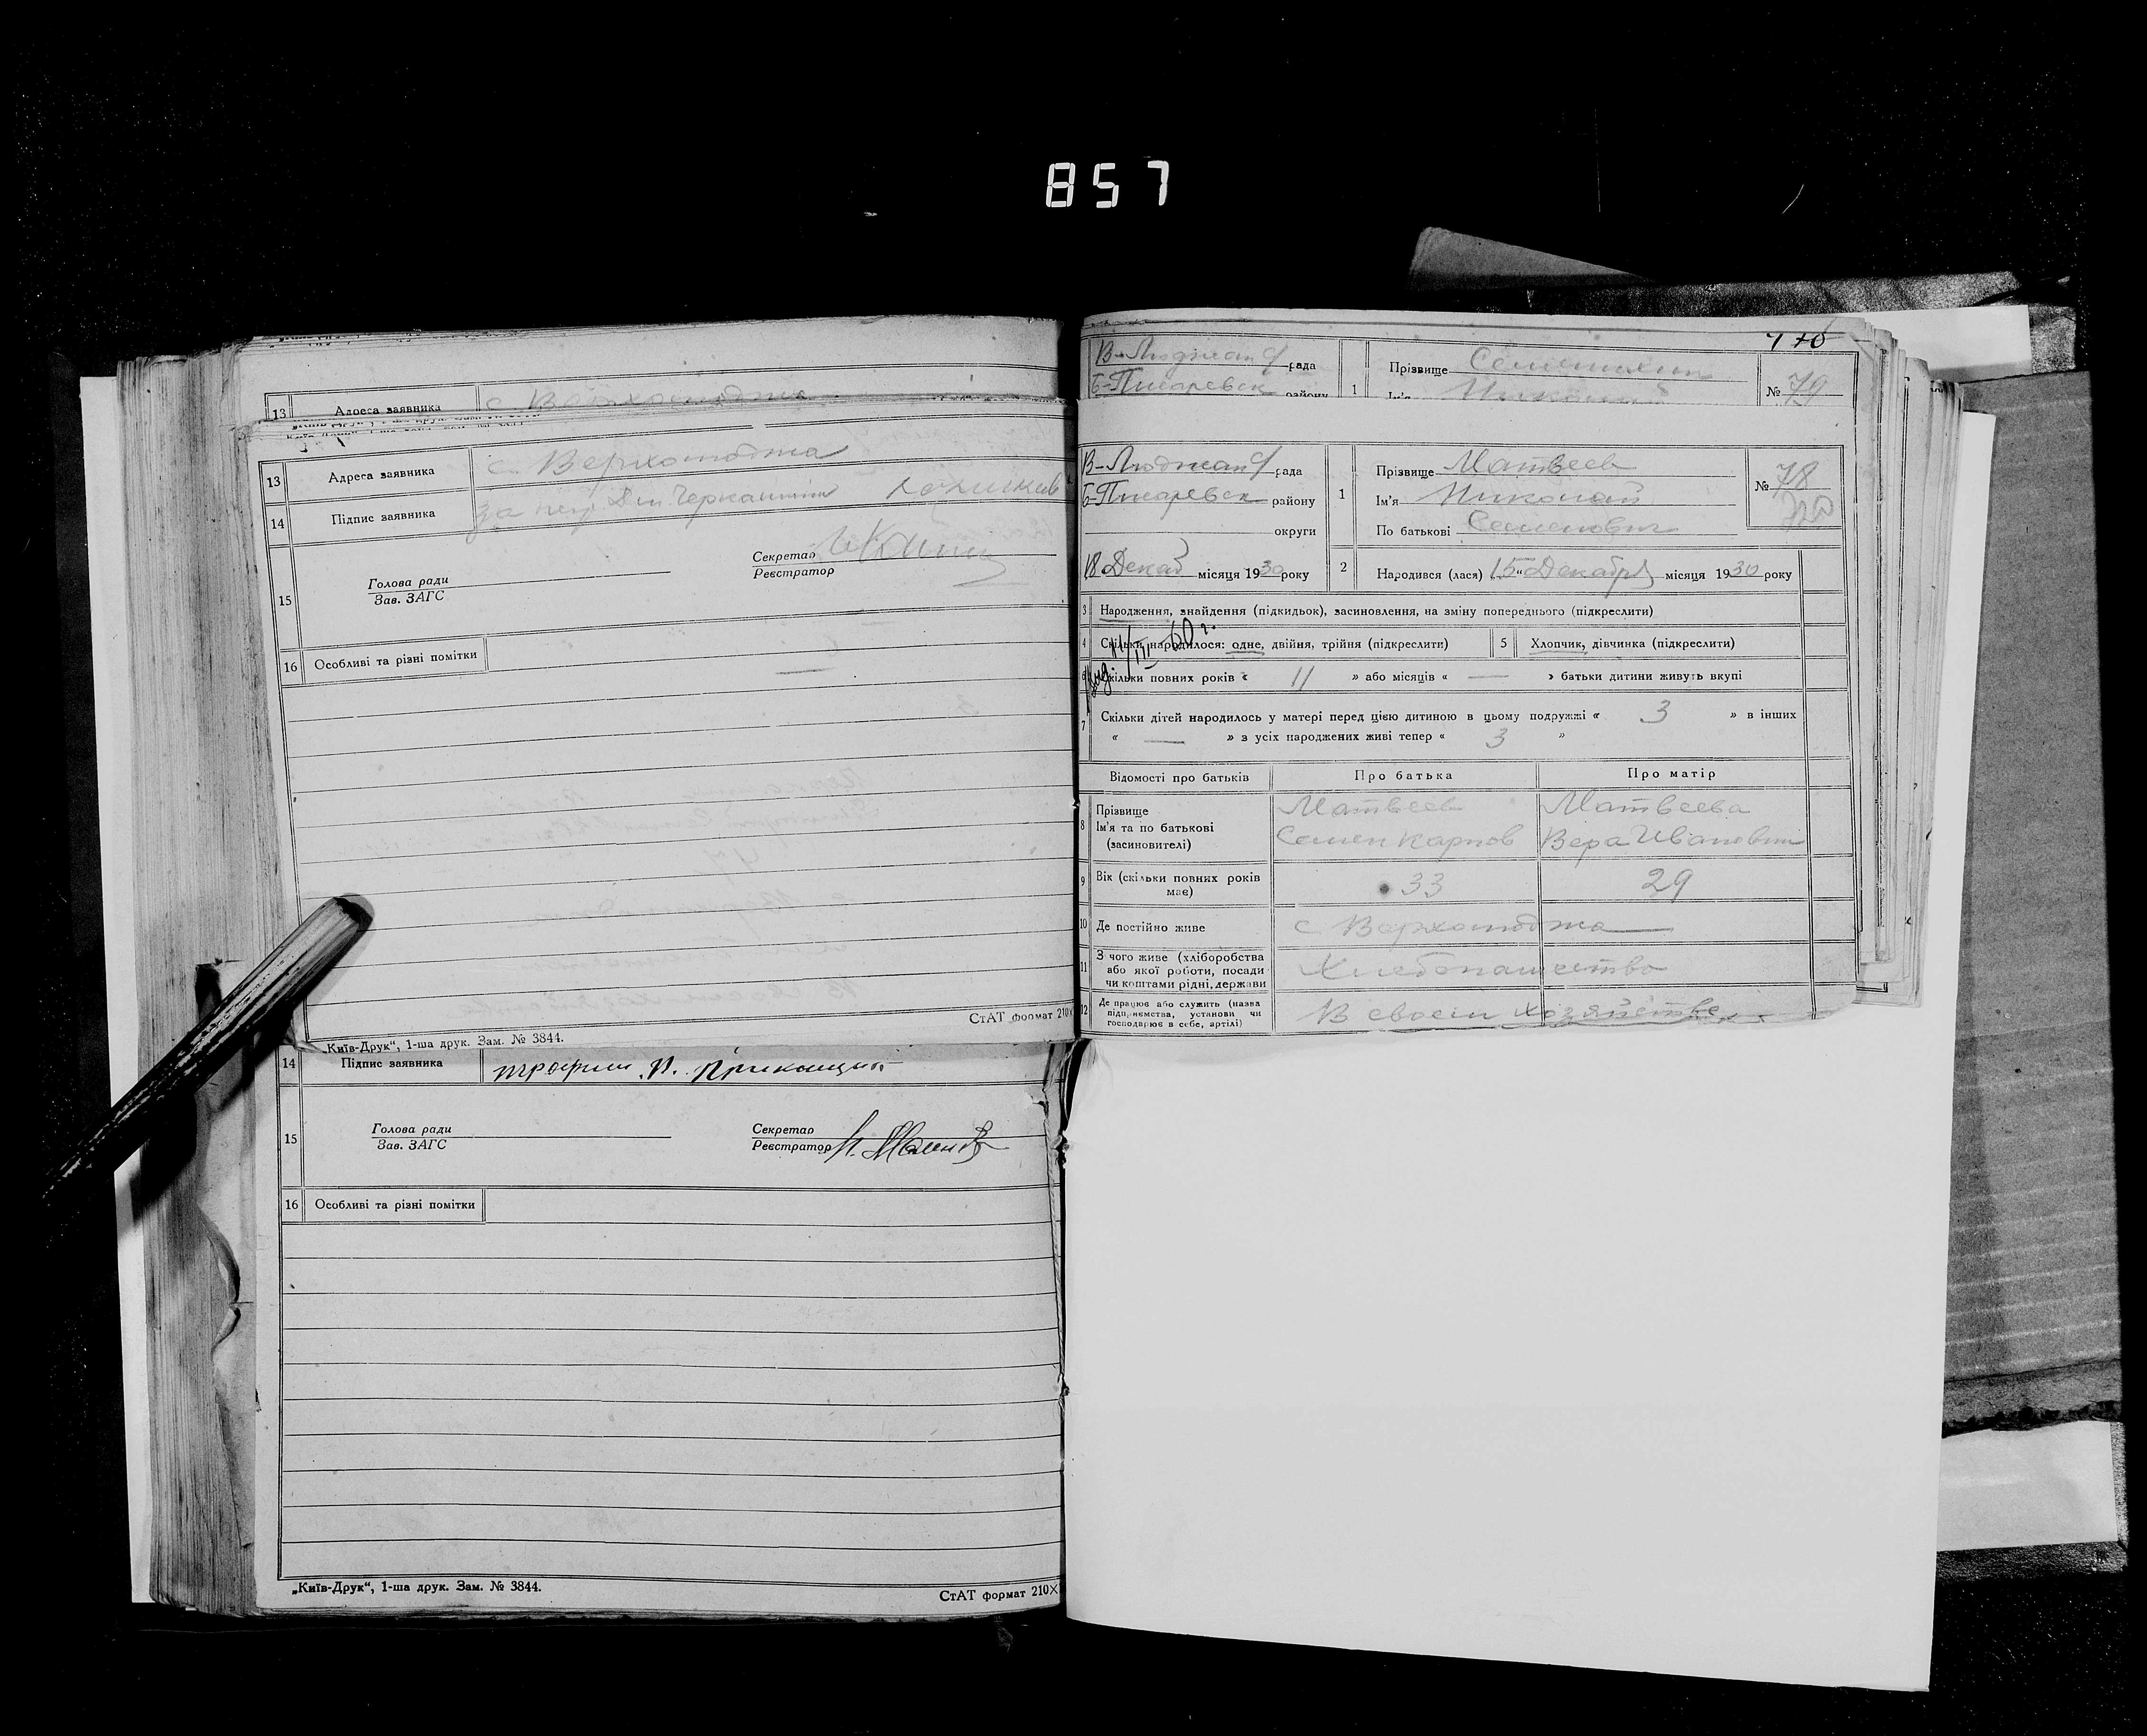 857
13 Адреса заявника с Верхолюджа
13 Адреса заявника с. Верхолюджа
14 Підпис заявника за неу
15 Голова ради
Зав. ЗАГС
Секретар
Реєстратор
16 Особливі та різні помітки
СтАТ формат 210×
„Київ-Друк“, 1-ша друк. Зам. № 3844.
14 Підпис заявника
15 Голова ради
Зав. ЗАГС
Секретар
Реєстратор
16 Особливі та різні помітки
„Київ-Друк“, 1-ша друк. Зам. № 3844.
СтАТ формат 210×
В-Люджан рада
Б-Писаревск району
1 Прізвище
Ім'я Николай
№ 79
В-Люджан рада
Б-Писаревск району
округи
18 Декаб місяця 1930 року
1 Прізвище Матвеев
Ім'я Николай
По батькові Семенович
№ 78
2 Народився (лася) „15“ Декабря місяця 1930 року
3 Народження, знайдення (підкидьок), засиновлення, на зміну попереднього (підкреслити)
4 Скільки народилося: одне, двійня, трійня (підкреслити) 5 Хлопчик, дівчинка (підкреслити)
III 60 г.
6 Скільки повних років « 11 » або місяців « — » батьки дитини живуть вкупі
7 Скільки дітей народилось у матері перед цією дитиною в цьому подружжі « 3 » в інших
« — » з усіх народжених живі тепер « 3 »
Відомості про батьків Про батька Про матір
8 Прізвище Матвеев Матвеева
Ім'я та по батькові Семен Карпов Вера Ивановна
(засиновителі)
9 Вік (скільки повних років має) 33 29
10 Де постійно живе с Верхолюджа
11 З чого живе (хліборобства
або якої роботи, посади Хлебопашество
чи коштами рідні, держави
12 Де працює або служить (назва
підприємства, установи чи В своем хозяйстве
господарює в себе, артілі)